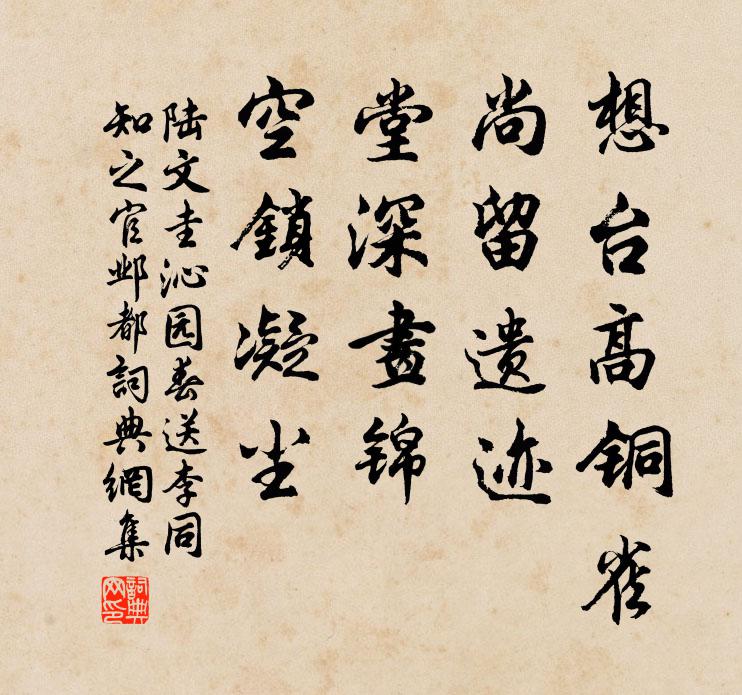 想台高铜雀
尚留遗迹
堂深畫锦
空鎖凝尘
陆文圭沁园春送李同
知之官邺都詞典網集
詞典网印